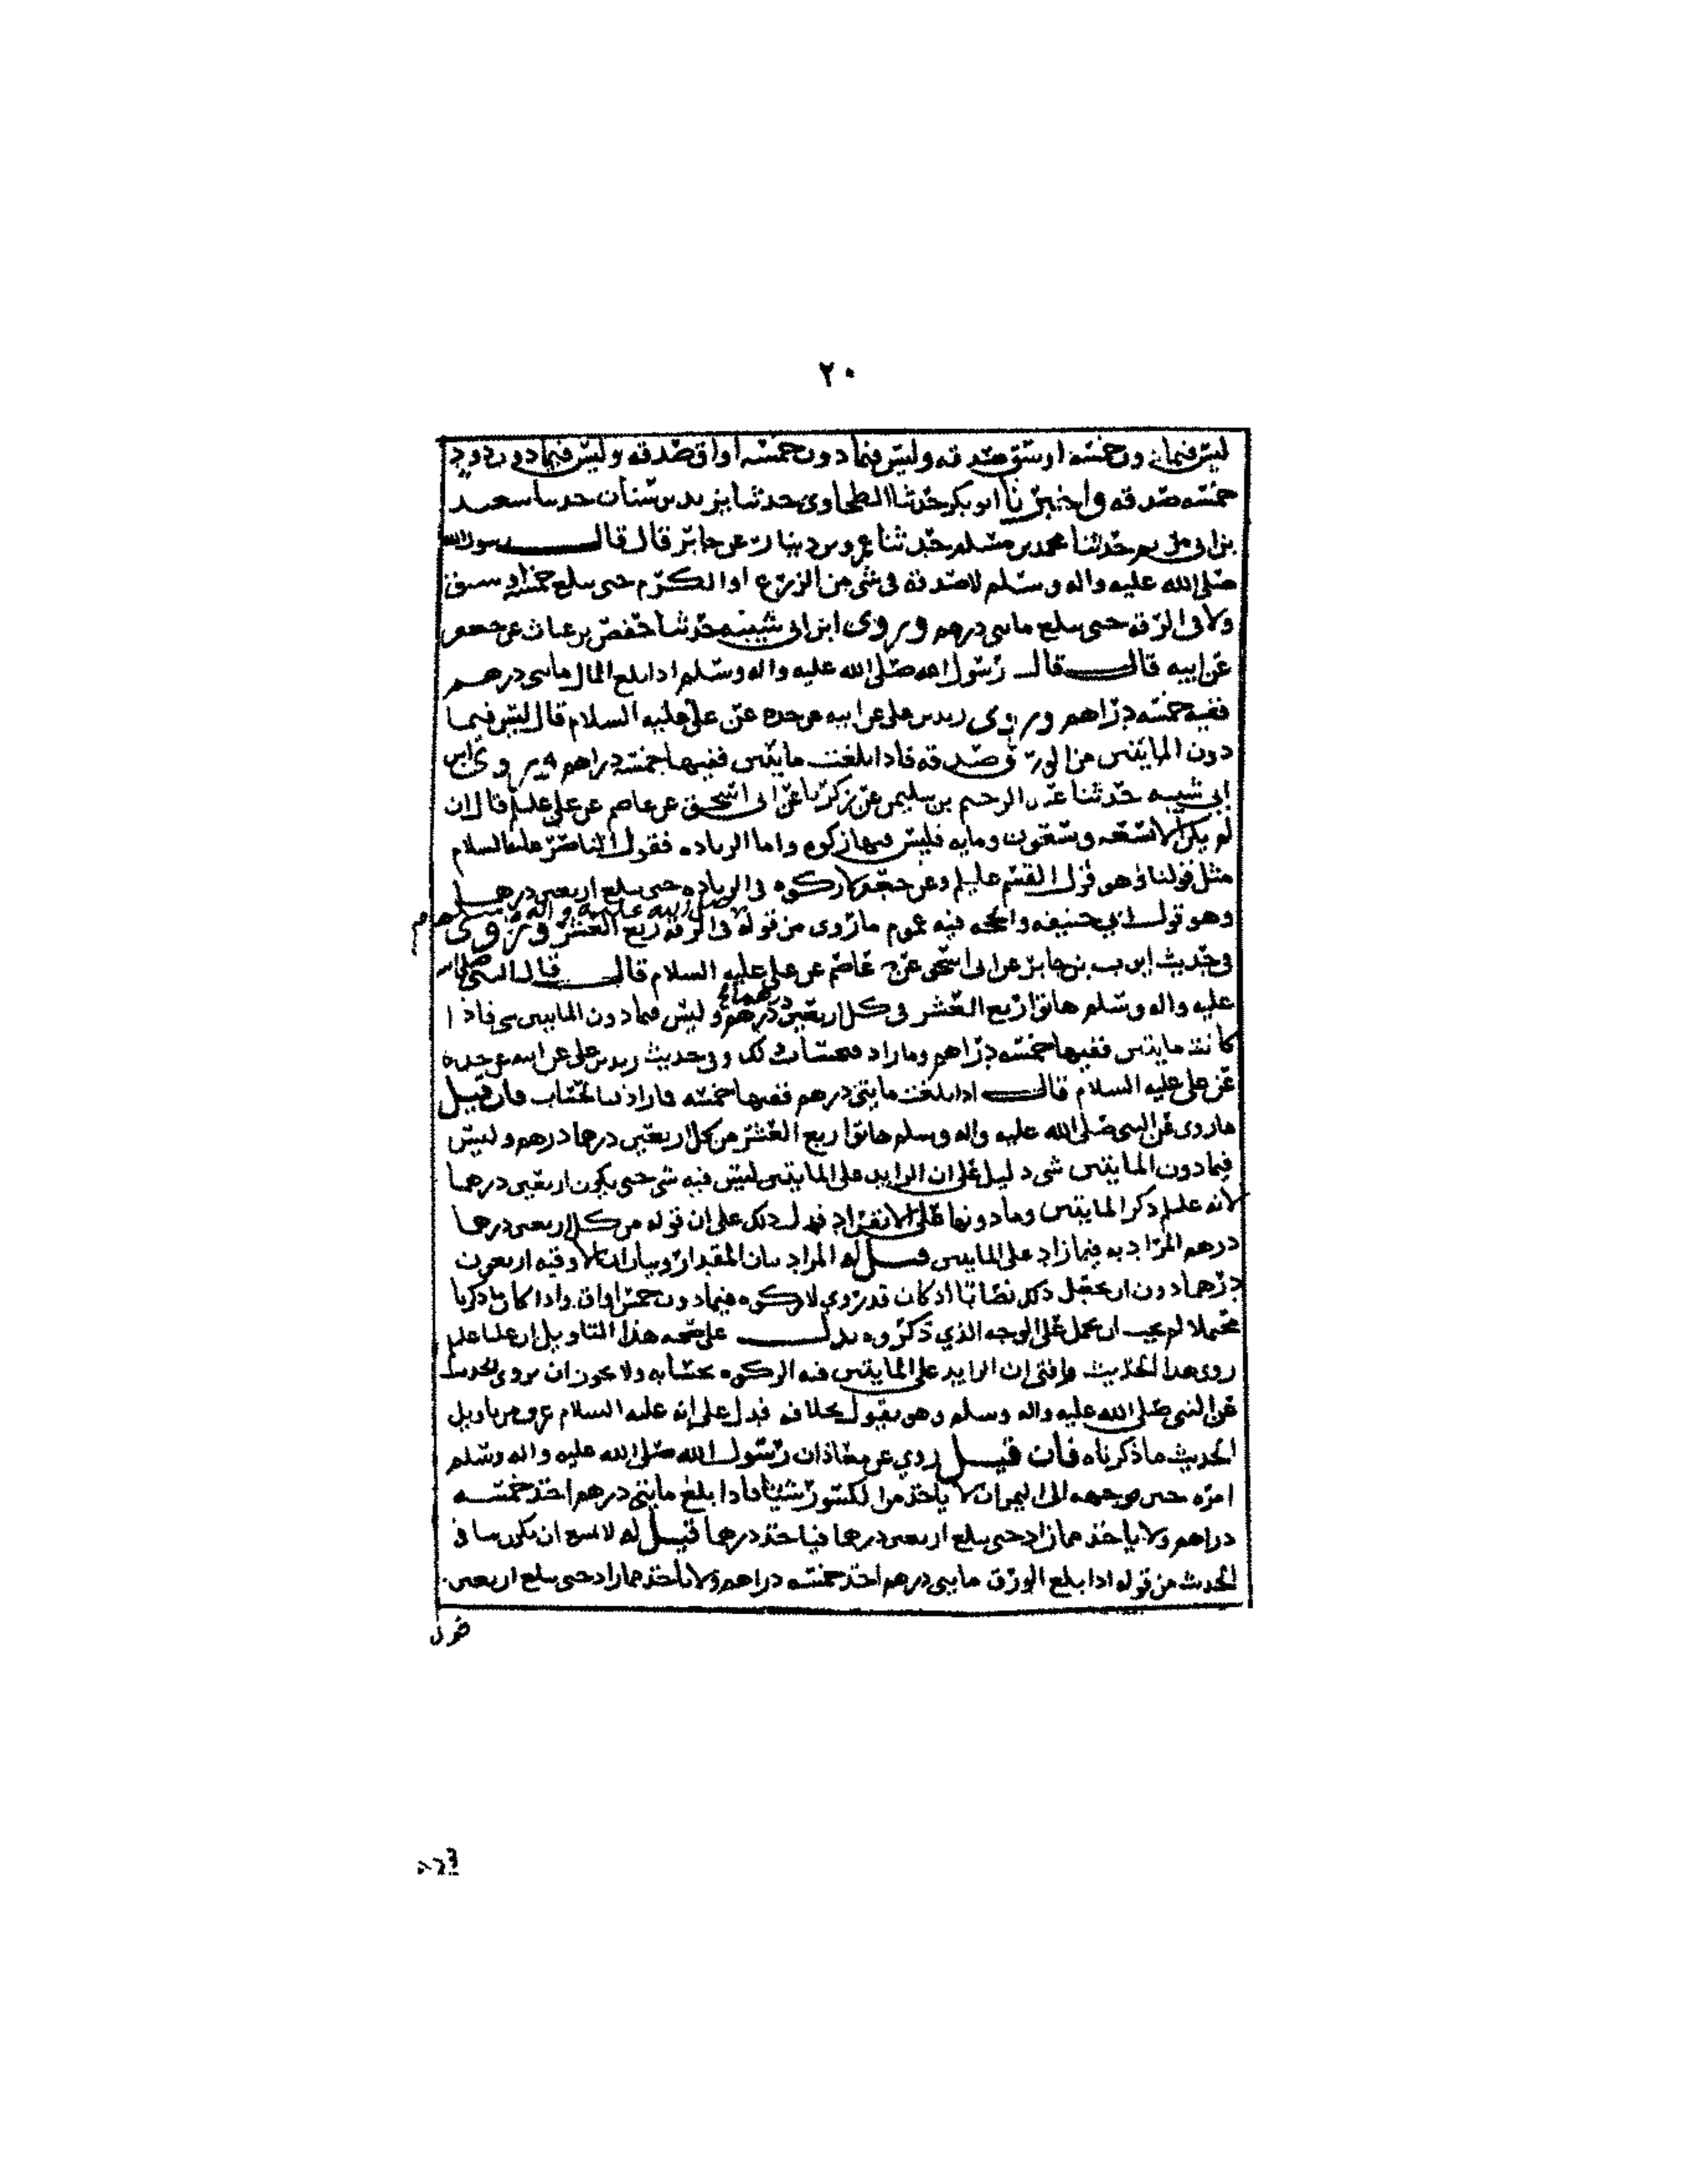 ٢٠
ليس فيما دون خمسه اوسق صدقه وليس فيما دون خمسه اواق صدقه وليس فيما دون ذود
خمسه صدقه واخبرنا ابو بكر حدثنا الطحاوي حدثنا يزيد بن سنان حدثنا سعيد
بن ابي مريم حدثنا محمد بن مسلم حدثنا عمرو بن دينار عن جابر قال قال رسول الله
صلى الله عليه واله وسلم لا صدقة في شي من الزرع او الكرم حتى يبلغ خمسه اوسق
ولا في الرقه حتى يبلغ مايتي درهم وروى ابن ابي شيبه حدثنا حفص بن غياث عن جعفر
عن ابيه قال قال رسول الله صلى الله عليه واله وسلم اذا بلغ المال مايتي درهم
ففيه خمسه دراهم وروى زيد بن علي عن ابيه عن جده عن علي عليه السلام قال ليس فيما
دون المايتين من الورق صدقه فاذا بلغت مايتين ففيها خمسه دراهم وروى ابن
ابي شيبه حدثنا عبد الرحيم بن سليمن عن زكريا عن ابي اسحق عن عاصم عن علي علیلم قال ان
لم يكن الا تسعه وتسعون ومايه فليس فيها زكوه واما الزياده فقول الناصر عليه السلام
مثل قولنا وهو قول القسم علیلم وعن جعفر لا زكوه في الزياده حتى يبلغ اربعين درهما
وهو قول ابي حنيفه والحجه فيه عموم ما روى من قوله صلى الله عليه واله وسلم في الرقه ربع العشر وروى
في حديث ايوب بن جابر عن ابي اسحق عن عاصم عن علي عليه السلام قال قال النبي صلى الله
عليه واله وسلم هاتوا ربع العشر في كل اربعين درهما درهم وليس فيما دون المايتين شي فاذا
كانت مايتين ففيها خمسه دراهم وما زاد فبحساب ذلك وفي حديث زيد بن علي عن ابيه عن جده
عن علي عليه السلام قال اذا بلغت مايتي درهم ففيها خمسه فما زاد فبالحساب فان قيل
ما روى عن النبي صلى الله عليه واله وسلم هاتوا ربع العشر من كل اربعين درهما درهم وليس
فيما دون المايتين شي دليل على ان الزايد على المايتين ليس فيه شي حتى يكون اربعين درهما
لانه علیلم ذكر المايتين وما دونها على الانفراد فدل ذلك على ان قوله من كل اربعين درهما
درهم المراد به فيما زاد على المايتين قيل له المراد بيان المقدار وبيان ان الاوقيه اربعون
درهما دون ان يجعل ذلك نصابا اذ كان قد روي لا زكوه فيما دون خمس اواق واذا كان ما ذكرنا
محتملا لم يجب ان يحمل على الوجه الذي ذكروه يدل على صحه هذا التاويل ان عليا علیلم
روى هذا الحديث وافتى ان الزايد على المايتين فيه الزكوه بحسابه ولا يجوز ان يروى الحديث
عن النبي صلى الله عليه واله وسلم وهو يقول بخلافه فدل على انه عليه السلام عرف من تاويل
الحديث ما ذكرناه فان قيل روي عن معاذ ان رسول الله صلى الله عليه واله وسلم
امره حين وجهه الى اليمن ان لا ياخذ من الكسور شيئا فاذا بلغ مايتي درهم اخذ خمسه
دراهم ولا ياخذ مما زاد حتى يبلغ اربعين درهما فياخذ درهما قيل له لا يمتنع ان يكون ما في
الحديث من قوله اذا بلغ الورق مايتي درهم اخذ خمسه دراهم ولا ياخذ مما زاد حتى يبلغ اربعين